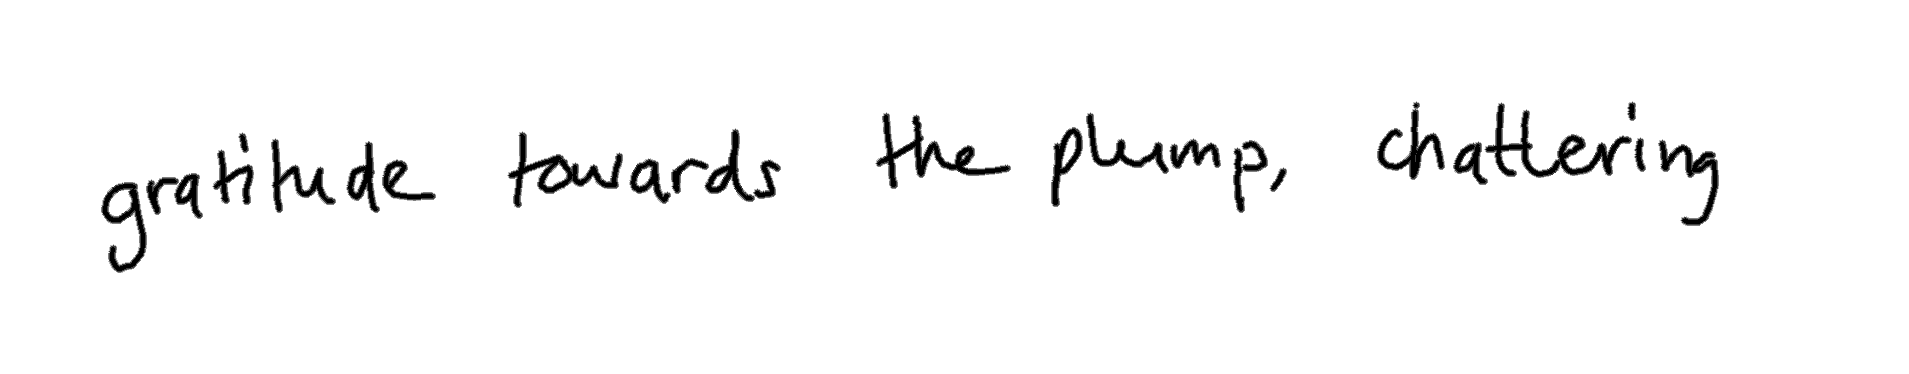 gratitude towards the plump, chattering